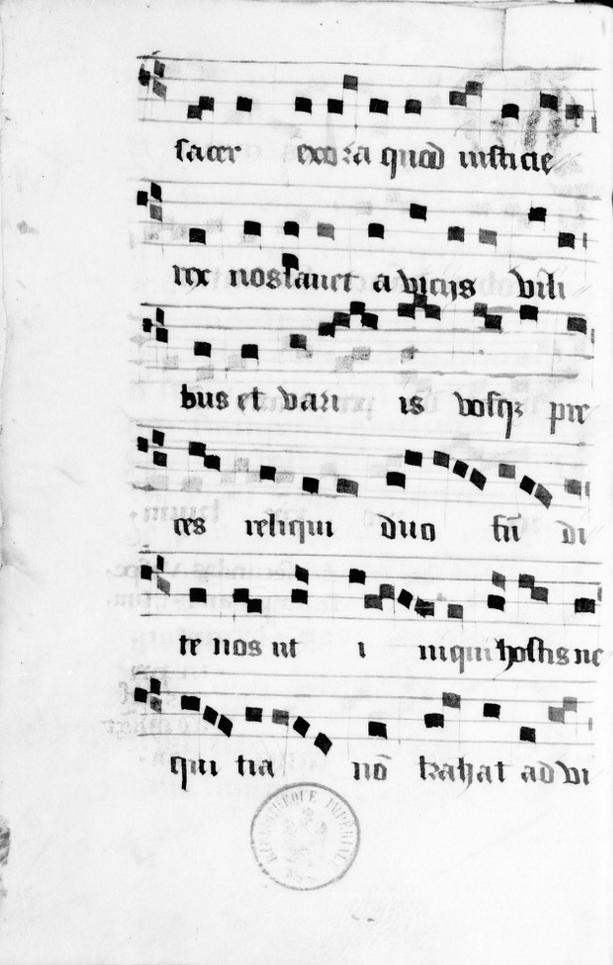 sacer exora quod iusticie
rex nos lauet a vicijs vili
bus et vari is vosqz pre
ces reliqui duo fu͞ di
te nos ut i niqui hostis ne
qui tia no͞ trahat ad vi
BIBLIOTHEQUE IMPERIALE